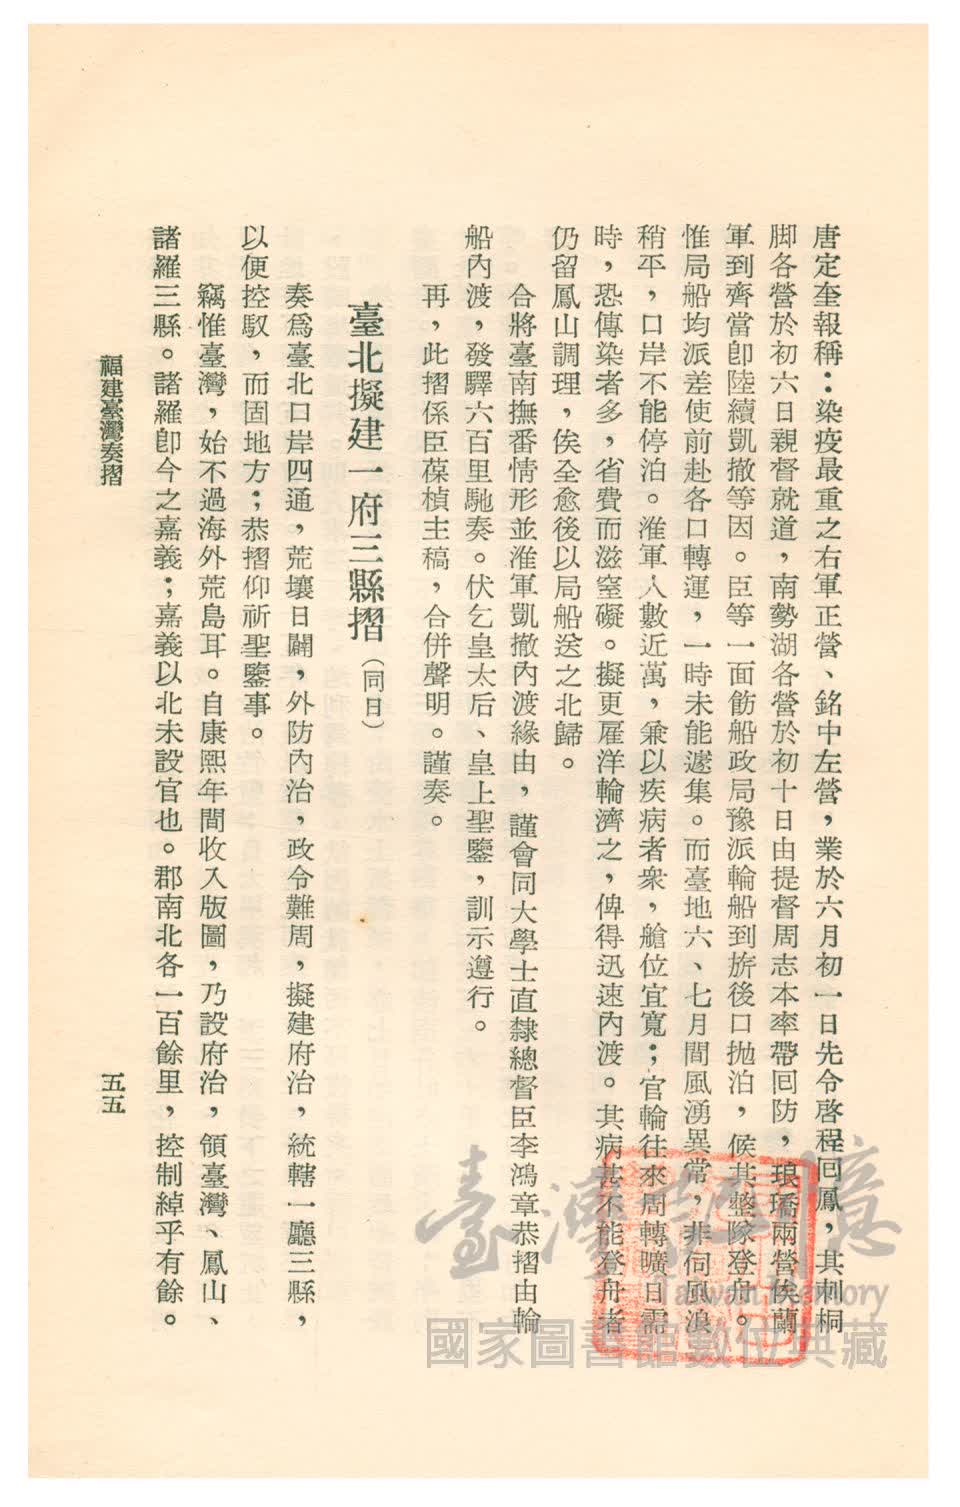 唐定奎報稱：染疫最重之右軍正營、銘中左營，業於六月初一日先令啓程回鳳，其刺桐
脚各營於初六日親督就道，南勢湖各營於初十日由提督周志本率帶回防，瑯𤩝兩營俟蘭
軍到齊當卽陸續凱撤等因。臣等一面飭船政局豫派輪船到旂後口拋泊，候其整隊登舟。
惟局船均派差使前赴各口轉運，一時未能遽集。而臺地六、七月間風湧異常，非伺風浪
稍平，口岸不能停泊。淮軍人數近萬，兼以疾病者衆，艙位宜寬；官輪往來周轉曠日需
時，恐傳染者多，省費而滋窒礙。擬更雇洋輪濟之，俾得迅速內渡。其病甚不能登舟者
仍留鳳山調理，俟全愈後以局船送之北歸。
合將臺南撫番情形並淮軍凱撤內渡緣由，謹會同大學士直隸總督臣李鴻章恭摺由輪
船內渡，發驛六百里馳奏。伏乞皇太后、皇上聖鑒，訓示遵行。
再，此摺係臣葆楨主稿，合併聲明。謹奏。
臺北擬建一府三縣摺（同日）
奏爲臺北口岸四通，荒壤日闢，外防內治，政令難周，擬建府治，統轄一廳三縣，
以便控馭，而固地方；恭摺仰祈聖鑒事。
竊惟臺灣，始不過海外荒島耳。自康熙年間收入版圖，乃設府治，領臺灣、鳳山、
諸羅三縣。諸羅卽今之嘉義；嘉義以北未設官也。郡南北各一百餘里，控制綽乎有餘。
福建臺灣奏摺
五五
臺灣記憶
Taiwan Memory
國家圖書館數位典藏